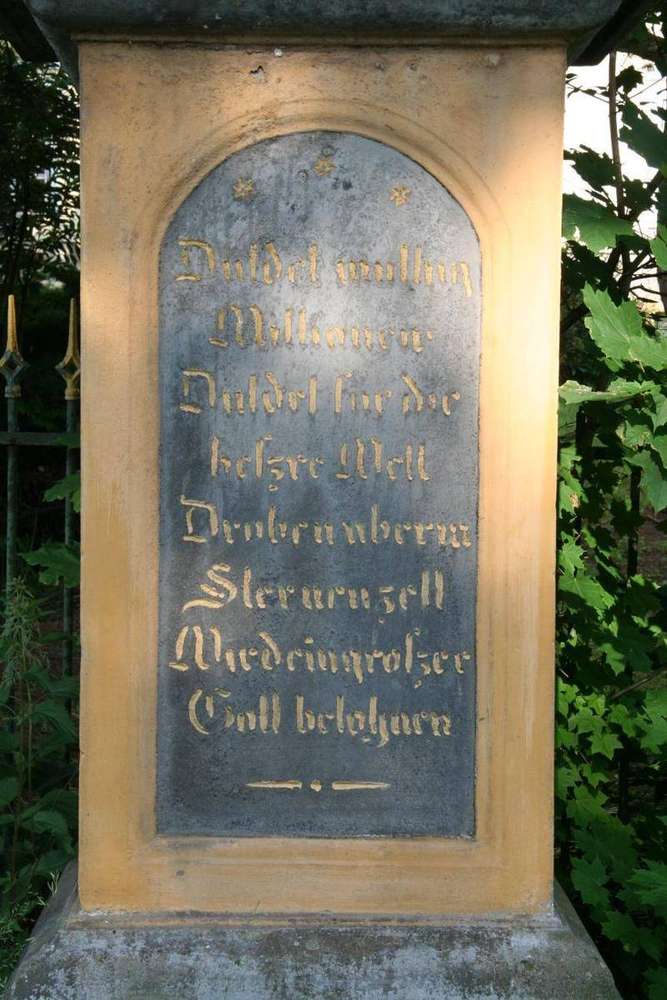 Duldet muthig
Millionen
Duldet für die
beßre Welt
Droben überm
Sternenzelt
Wird ein großer
Gott belohnen